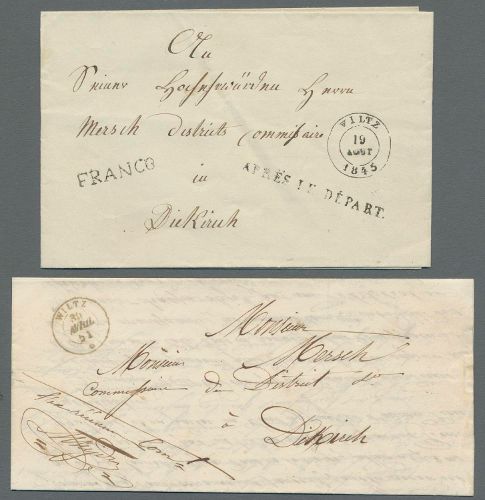 An
Seiner Hochehrwürden Herrn
Mersch Districts Commissaire
in
Diekirch
FRANCO
WILTZ
19
AOUT
1845
APRÈS LE DÉPART.
WILTZ
AVRIL
51
Monsieur
Mersch
Monsieur
Commissaire de District
à
Diekirch